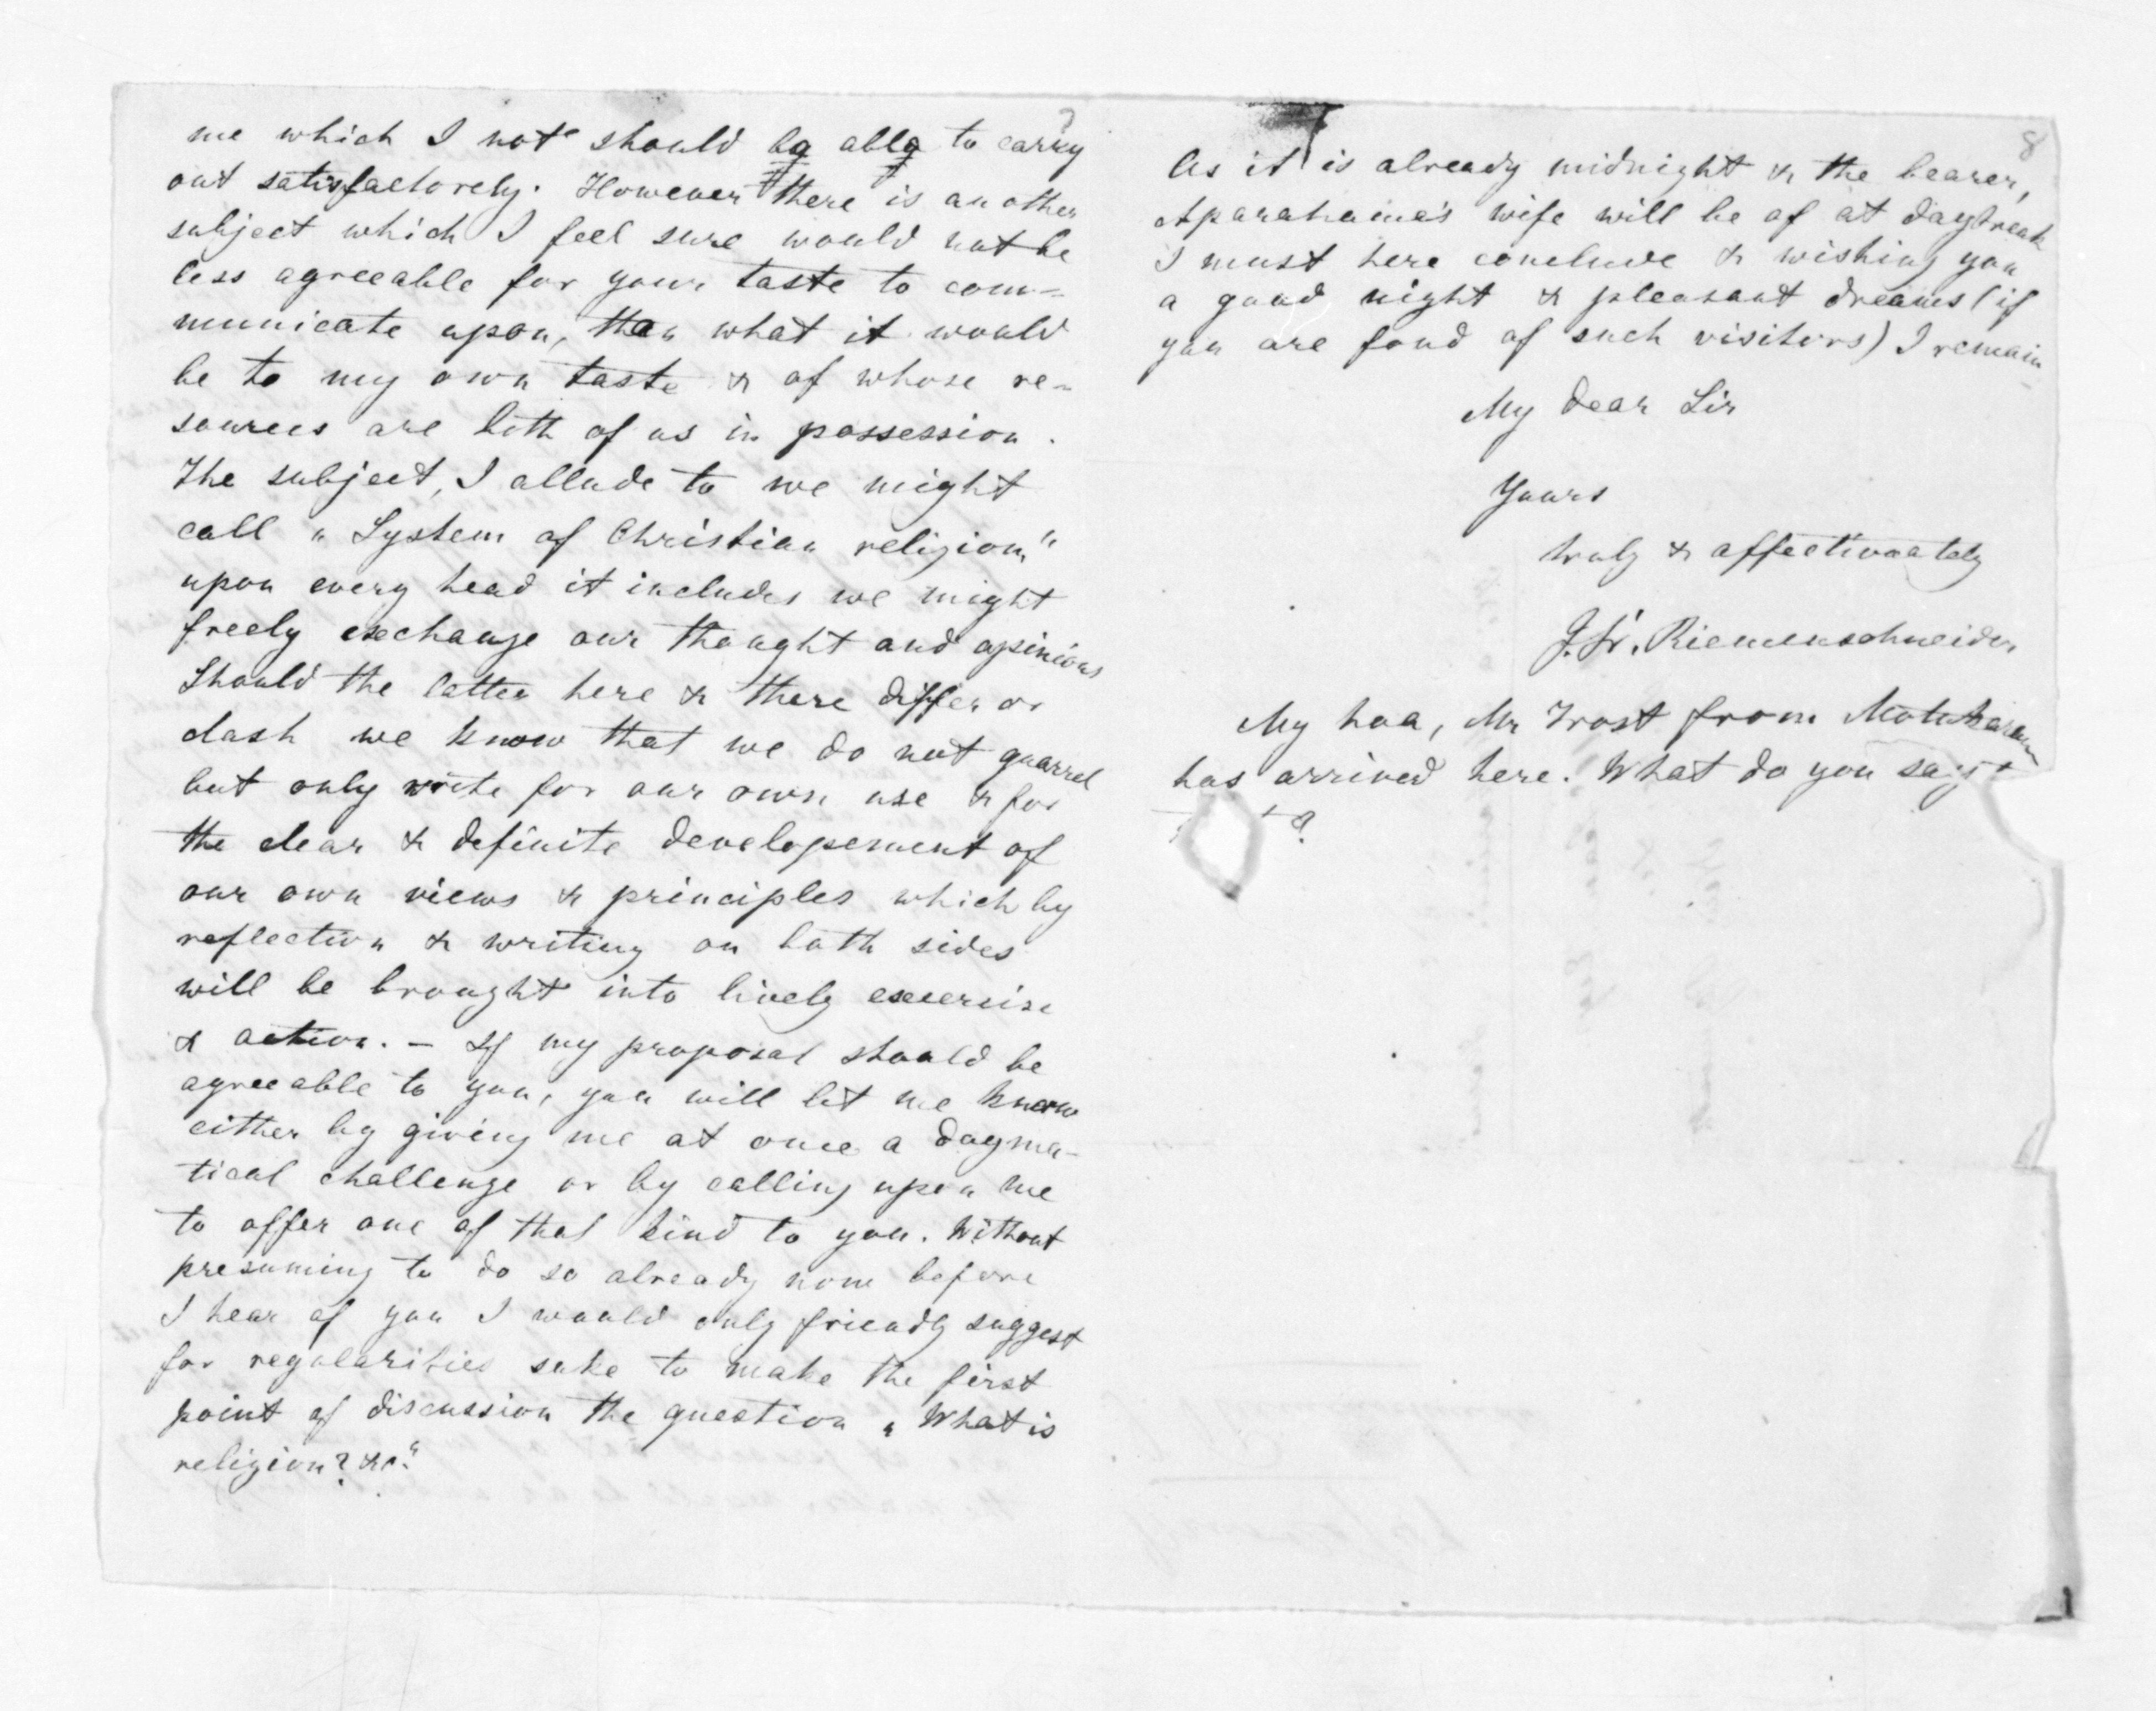 7
me which I not should be able to carry
out satisfactorely. However there is another
subject which I feel sure would not be
less agreeable for your taste to com=
municate upon, than what it would
be to my own taste & of whose re=
sources are both of us in possession.
The subject, I allude to we might
call „System of Christian religion"
upon every head it includes we might
freely exechange our thought and opinions
Should the latter here & there differ or
clash we know that we do not quarrel
but only write for our own use & for
the clear & definite developement of
our own views & principles which by
reflection & writing on both sides
will be brought into lively execercise
& action. – If my proposal should be
agreeable to you, you will let me know
either by giving me at once a dogma-
tical challenge or by calling upon me
to offer one of that kind to you. Without
presuming to do so already now before
I hear of you I would only friendly suggest
for regularities sake to make the first
point of discussion the question „What is
religion? &c."
8
As it is already midnight & the bearer,
Aparahama's wife will be of at daybreak
I must here conclude & wishing you
a good night & pleasant dreams (if
you are fond of such visitors) I remain
My dear Sir
Yours
truly & affectionately
J. Fr. Riemenschneider
My hoa, Mr Trost from Motukaramu
has arrived here. What do you say
?